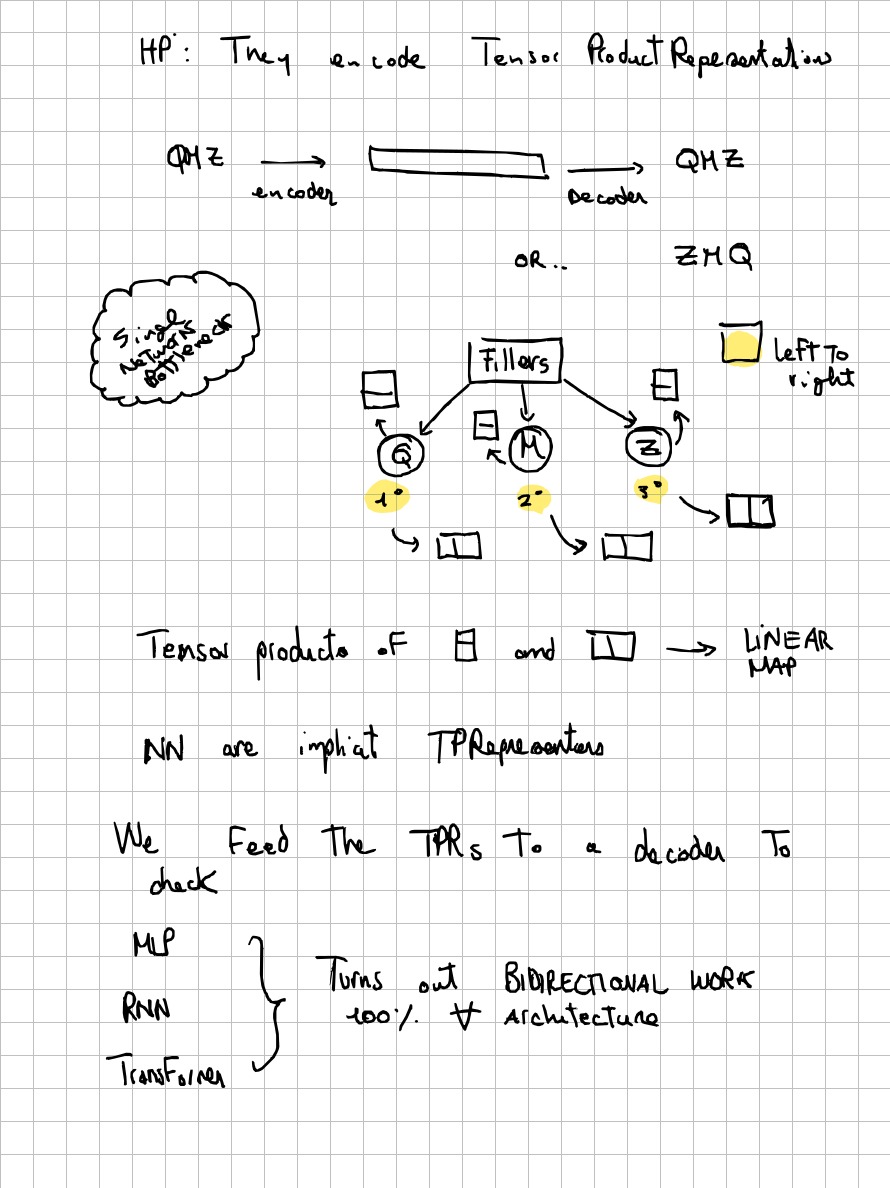 HP: They encode Tensor Product Representations
QMZ → encoder → Decoder QMZ
OR.. ZMQ
Single
Network
Bottleneck
Fillers
Left To
right
Q M Z
1° 2° 3°
Tensor products of and → LINEAR
MAP
NN are implicit TPRepresenters
We Feed The TPRs To a decoder To
check
MLP
RNN
Transformer
Turns out BIDIRECTIONAL WORK
100% ∀ Architecture